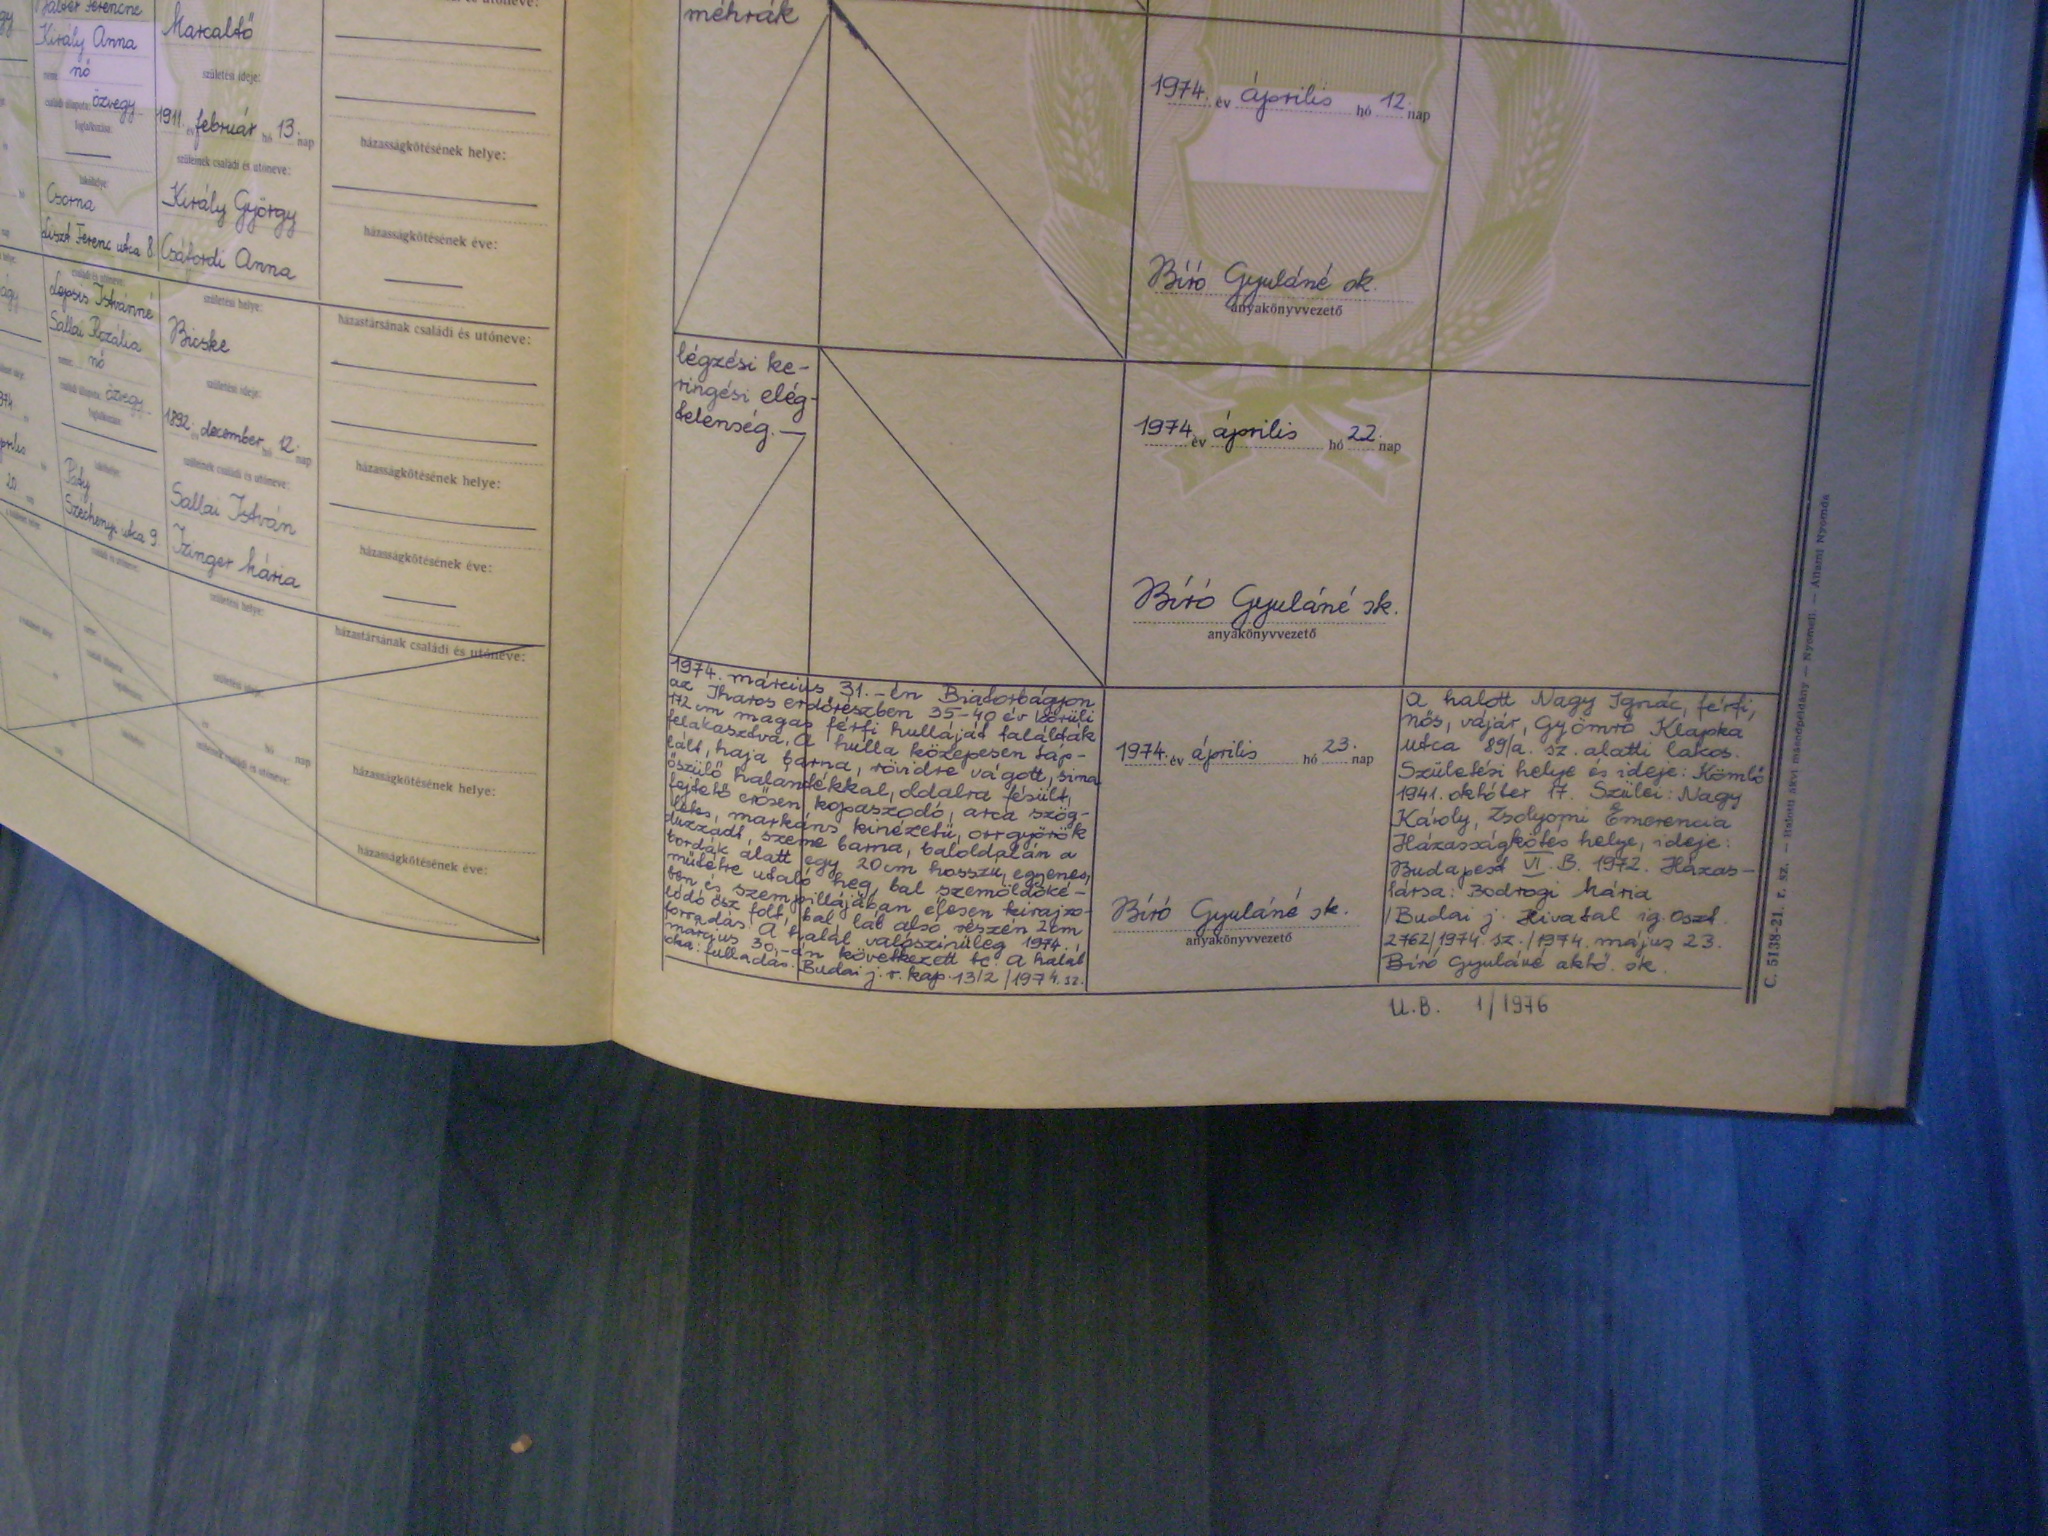 Király Anna
nő
családi állapota: özvegy
foglalkozása:
lakóhelye:
Csorna
Liszt Ferenc utca 8.
Marcaltő
születési ideje:
1911. év február hó 13. nap
szüleinek családi és utóneve:
Király György
Csáfordi Anna
házasságkötésének helye:
házasságkötésének éve:
családi és utóneve:
Lepsis Istvánné
Sallai Rozália
neme: nő
családi állapota: özvegy
foglalkozása:
lakóhelye:
Páty
Széchenyi utca 9.
születési helye:
Bicske
születési ideje:
1892. év december hó 12. nap
szüleinek családi és utóneve:
Sallai István
Izinger Mária
házastársának családi és utóneve:
házasságkötésének helye:
házasságkötésének éve:
családi és utóneve:
születési helye:
születési ideje:
hó nap
szüleinek családi és utóneve:
házastársának családi és utóneve:
házasságkötésének helye:
házasságkötésének éve:
méhrák
1974. év április hó 12. nap
Bíró Gyuláné sk.
anyakönyvvezető
légzési ke-
ringési elég-
telenség. —
1974. év április hó 22. nap
Bíró Gyuláné sk.
anyakönyvvezető
1974. március 31.-én Biatorbágyon
az Iharos erdőrészben 35-40 év körüli
172 cm magas férfi hulláját találták
felakasztva. A hulla közepesen táp-
lált, haja barna, rövidre vágott, sima
őszülő halántékkal, oldalra fésült,
fejtető erősen kopaszodó, arca szög-
letes, markáns kinézetű, orrgyörök
duzzadt, szeme barna, baloldalán a
bordák alatt egy 20 cm hosszú, egyenes,
műtétre utaló heg, bal szemöldöké-
ben és szempillájában élesen kirajzo-
lódó ősz folt, bal láb alsó részén 2 cm
forradás. A halál valószinüleg 1974.
március 30.-án következett be. A halál
oka: fulladás. Budai j. r. kap. 1312/1974. sz.
1974. év április hó 23. nap
Bíró Gyuláné sk.
anyakönyvvezető
A halott Nagy Ignác, férfi,
nős, vájár, Gyömrő Klapka
utca 89/a. sz. alatti lakos.
Születési helye és ideje: Kömlő
1941. október 17. Szülei: Nagy
Károly, Zsólyomi Emerencia
Házasságkötés helye, ideje:
Budapest VI. B. 1972. Házas-
társa: Bodrogi Mária
/Budai j. Hivatal ig. Oszt.
2762/1974. sz./1974. május 23.
Bíró Gyuláné aktő. sk.
U.B. 1/1976
C. 5138-21. r. sz. — Halotti akvi másodpéldány — Nyomell. — Állami Nyomda